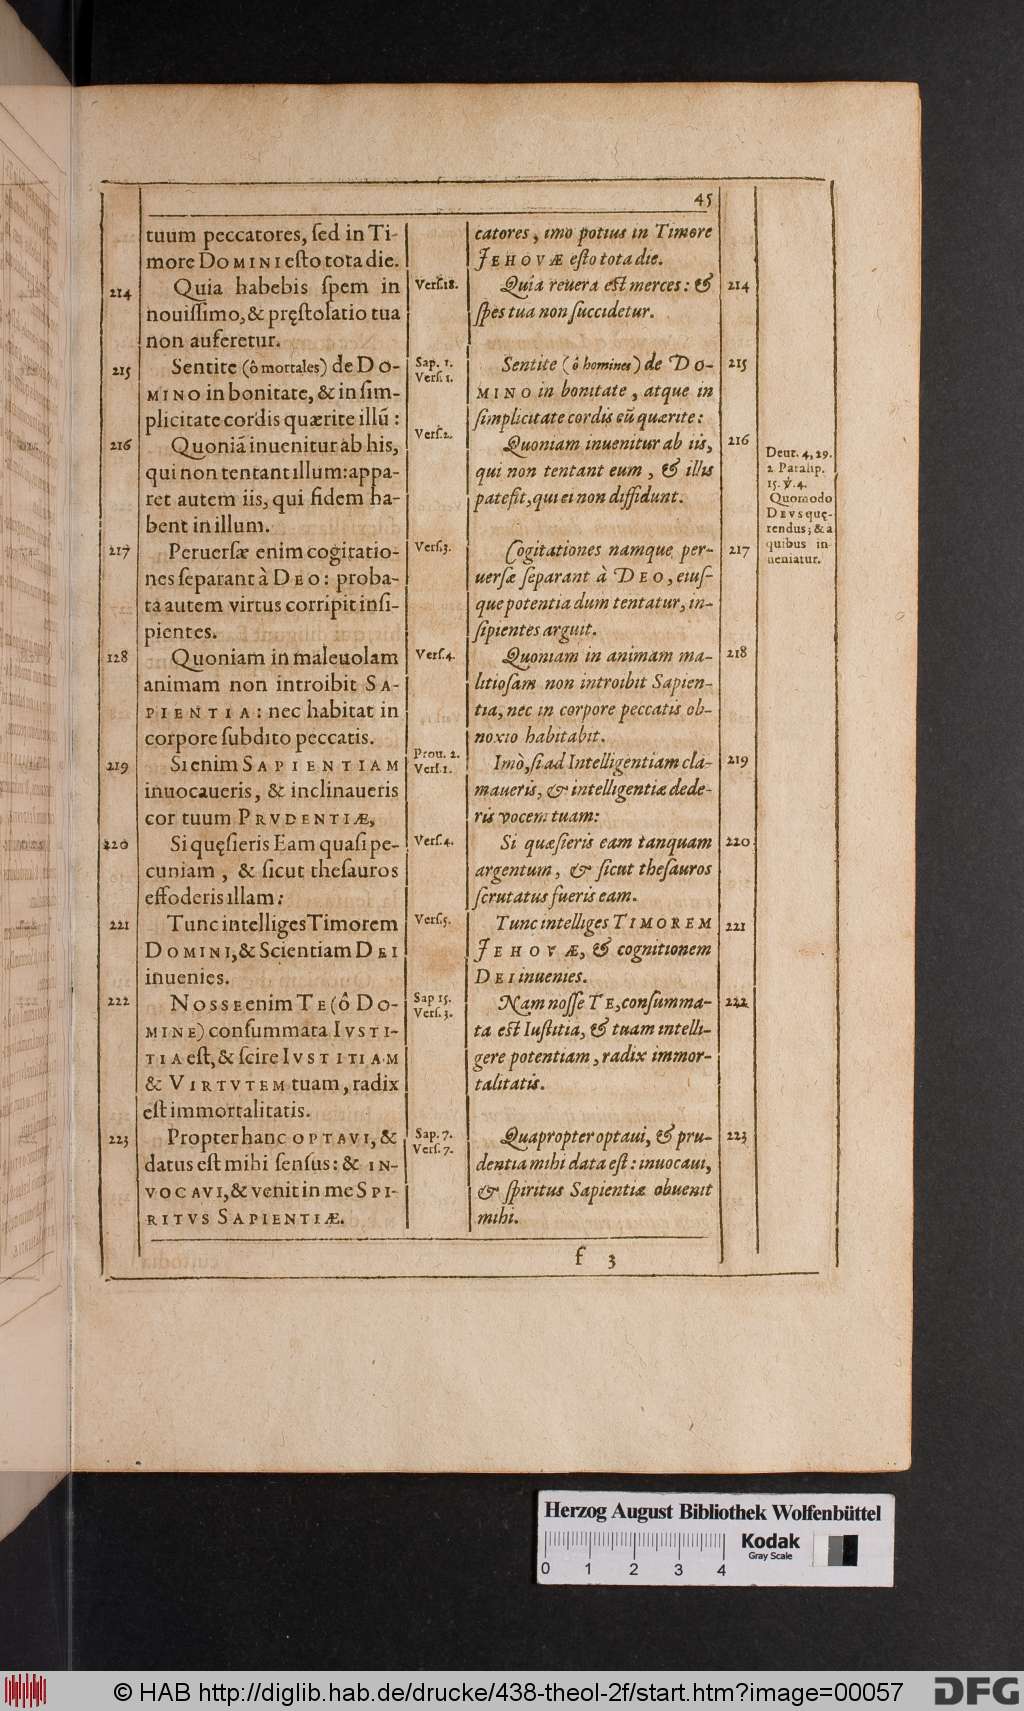 45
tuum peccatores, ſed in Ti-
more DOMINI eſto tota die.
214
Quia habebis ſpem in
nouiſſimo, & pręſtolatio tua
non auferetur.
215
Sentite (ô mortales) de DO-
MINO in bonitate, & in ſim-
plicitate cordis quærite illũ:
216
Quoniã inuenitur ab his,
qui non tentant illum: appa-
ret autem iis, qui fidem ha-
bent in illum.
217
Peruerſæ enim cogitatio-
nes ſeparant à DEO: proba-
ta autem virtus corripit inſi-
pientes.
128
Quoniam in maleuolam
animam non introibit SA-
PIENTIA: nec habitat in
corpore ſubdito peccatis.
219
Si enim SAPIENTIAM
inuocaueris, & inclinaueris
cor tuum PRVDENTIÆ,
220
Si quęſieris Eam quaſi pe-
cuniam, & ſicut theſauros
effoderis illam:
221
Tunc intelliges Timorem
DOMINI, & Scientiam DEI
inuenies.
222
NOSSE enim TE (ô DO-
MINE) conſummata IVSTI-
TIA eſt, & ſcire IVSTITIAM
& VIRTVTEM tuam, radix
eſt immortalitatis.
223
Propter hanc OPTAVI, &
datus eſt mihi ſenſus: & IN-
VOCAVI, & venit in me SPI-
RITVS SAPIENTIÆ.
Verſ.18.
Sap. 1.
Verſ. 1.
Verſ.2.
Verſ.3.
Verſ.4.
Prou. 2.
Verſ. 1.
Verſ.4.
Verſ.5.
Sap 15.
Verſ. 3.
Sap. 7.
Verſ. 7.
catores, imo potius in Timore
JEHOVÆ eſto tota die.
Quia reuera eſt merces: &
ſpes tua non ſuccidetur.
214
Sentite (ô homines) de DO-
MINO in bonitate, atque in
ſimplicitate cordis eũ quærite:
215
Quoniam inuenitur ab iis,
qui non tentant eum, & illis
patefit, qui ei non diffidunt.
216
Cogitationes namque per-
uerſæ ſeparant à DEO, eiuſ-
que potentia dum tentatur, in-
ſipientes arguit.
217
Quoniam in animam ma-
litioſam non introibit Sapien-
tia, nec in corpore peccatis ob-
noxio habitabit.
218
Imò, ſi ad Intelligentiam cla-
maueris, & intelligentiæ dede-
ris vocem tuam:
219
Si quæſieris eam tanquam
argentum, & ſicut theſauros
ſcrutatus fueris eam.
220
Tunc intelliges TIMOREM
JEHOVÆ, & cognitionem
DEI inuenies.
221
Nam noſſe TE, conſumma-
ta eſt Iuſtitia, & tuam intelli-
gere potentiam, radix immor-
talitatis.
222
Quapropter optaui, & pru-
dentia mihi data eſt: inuocaui,
& ſpiritus Sapientiæ obuenit
mihi.
223
Deut. 4, 29.
2 Paralip.
15. ℣. 4.
Quomodo
DEVS quę-
rendus; & a
quibus in-
ueniatur.
f 3
Herzog August Bibliothek Wolfenbüttel
0 1 2 3 4
Kodak
Gray Scale
© HAB http://diglib.hab.de/drucke/438-theol-2f/start.htm?image=00057
DFG